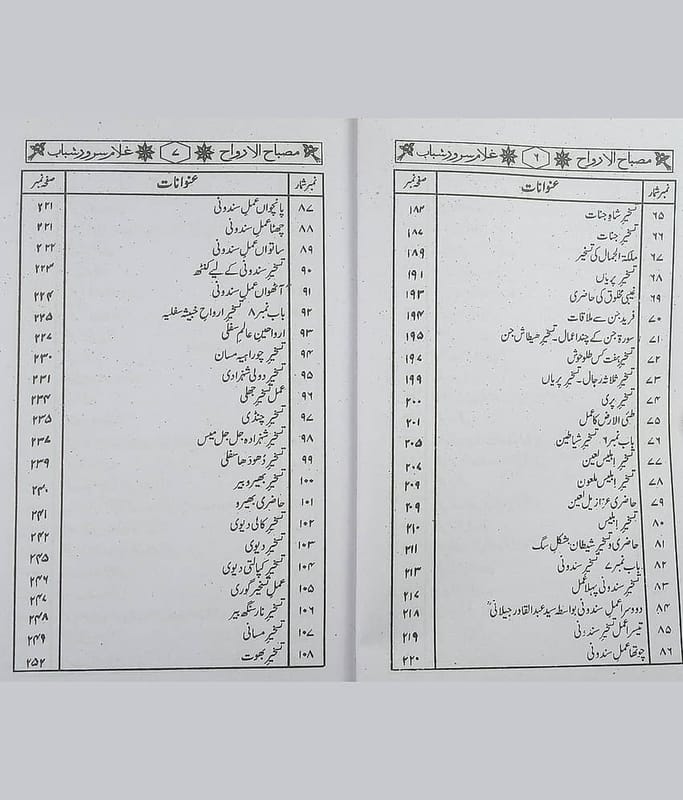 مصباح الارواح ۶ غلام سرور شباب
نمبر شمار عنوانات صفحہ نمبر
۶۵ تسخیر شاہ جنات ۱۸۴
۶۶ تسخیر جنات ۱۸۷
۶۷ ملکۃ الجمال کی تسخیر ۱۸۹
۶۸ تسخیر پریاں ۱۹۱
۶۹ غیبی مخلوق کی حاضری ۱۹۳
۷۰ فرید جن سے ملاقات ۱۹۴
۷۱ سورۃ جن کے چند اعمال۔ تسخیر ھیطاش جن ۱۹۵
۷۲ تسخیر ہفت کس طلوخوش ۱۹۷
۷۳ تسخیر ثلاثہ رجال۔ تسخیر پریاں ۱۹۹
۷۴ تسخیر پری ۲۰۰
۷۵ طئی الارض کا عمل ۲۰۱
۷۶ باب نمبر ۶ تسخیر شیاطین ۲۰۵
۷۷ تسخیر ابلیس لعین ۲۰۷
۷۸ تسخیر ابلیس ملعون ۲۰۹
۷۹ حاضری عزازیل لعین ۲۰۹
۸۰ تسخیر ابلیس ۲۱۰
۸۱ حاضری و تسخیر شیطان بشکل سگ ۲۱۱
۸۲ باب نمبر ۷ تسخیر سندونی ۲۱۳
۸۳ تسخیر سندونی پہلا عمل ۲۱۷
۸۴ دوسرا عمل سندونی بواسطہ سید عبدالقادر جیلانیؒ ۲۱۸
۸۵ تیسرا عمل تسخیر سندونی ۲۱۹
۸۶ چوتھا عمل سندونی ۲۲۰
مصباح الارواح ۷ غلام سرور شباب
نمبر شمار عنوانات صفحہ نمبر
۸۷ پانچواں عمل سندونی ۲۲۱
۸۸ چھٹا عمل سندونی ۲۲۱
۸۹ ساتواں عمل سندونی ۲۲۲
۹۰ تسخیر سندونی کے لیے کنٹھ ۲۲۳
۹۱ آٹھواں عمل سندونی ۲۲۴
۹۲ باب نمبر ۸ تسخیر ارواح خبیثہ سفلیہ ۲۲۵
۹۳ ارواحین عالم سفلی ۲۲۷
۹۴ تسخیر چوراہیہ مسان ۲۳۰
۹۵ تسخیر دولی شہزادی ۲۳۱
۹۶ عمل تسخیر جھلی ۲۳۴
۹۷ تسخیر چنڈی ۲۳۵
۹۸ تسخیر شہزادہ جل جل میٹس ۲۳۷
۹۹ تسخیر دھودھا سفلی ۲۳۹
۱۰۰ تسخیر بھیرو بیر ۲۴۰
۱۰۱ حاضری بھیرو ۲۴۱
۱۰۲ تسخیر کالی دیوی ۲۴۲
۱۰۳ تسخیر دیوی ۲۴۵
۱۰۴ تسخیر کپالتی دیوی ۲۴۶
۱۰۵ عمل تسخیر گوری ۲۴۷
۱۰۶ تسخیر نارسنگھ بیر ۲۴۸
۱۰۷ تسخیر مسانی ۲۴۹
۱۰۸ تسخیر بھوت ۲۵۲